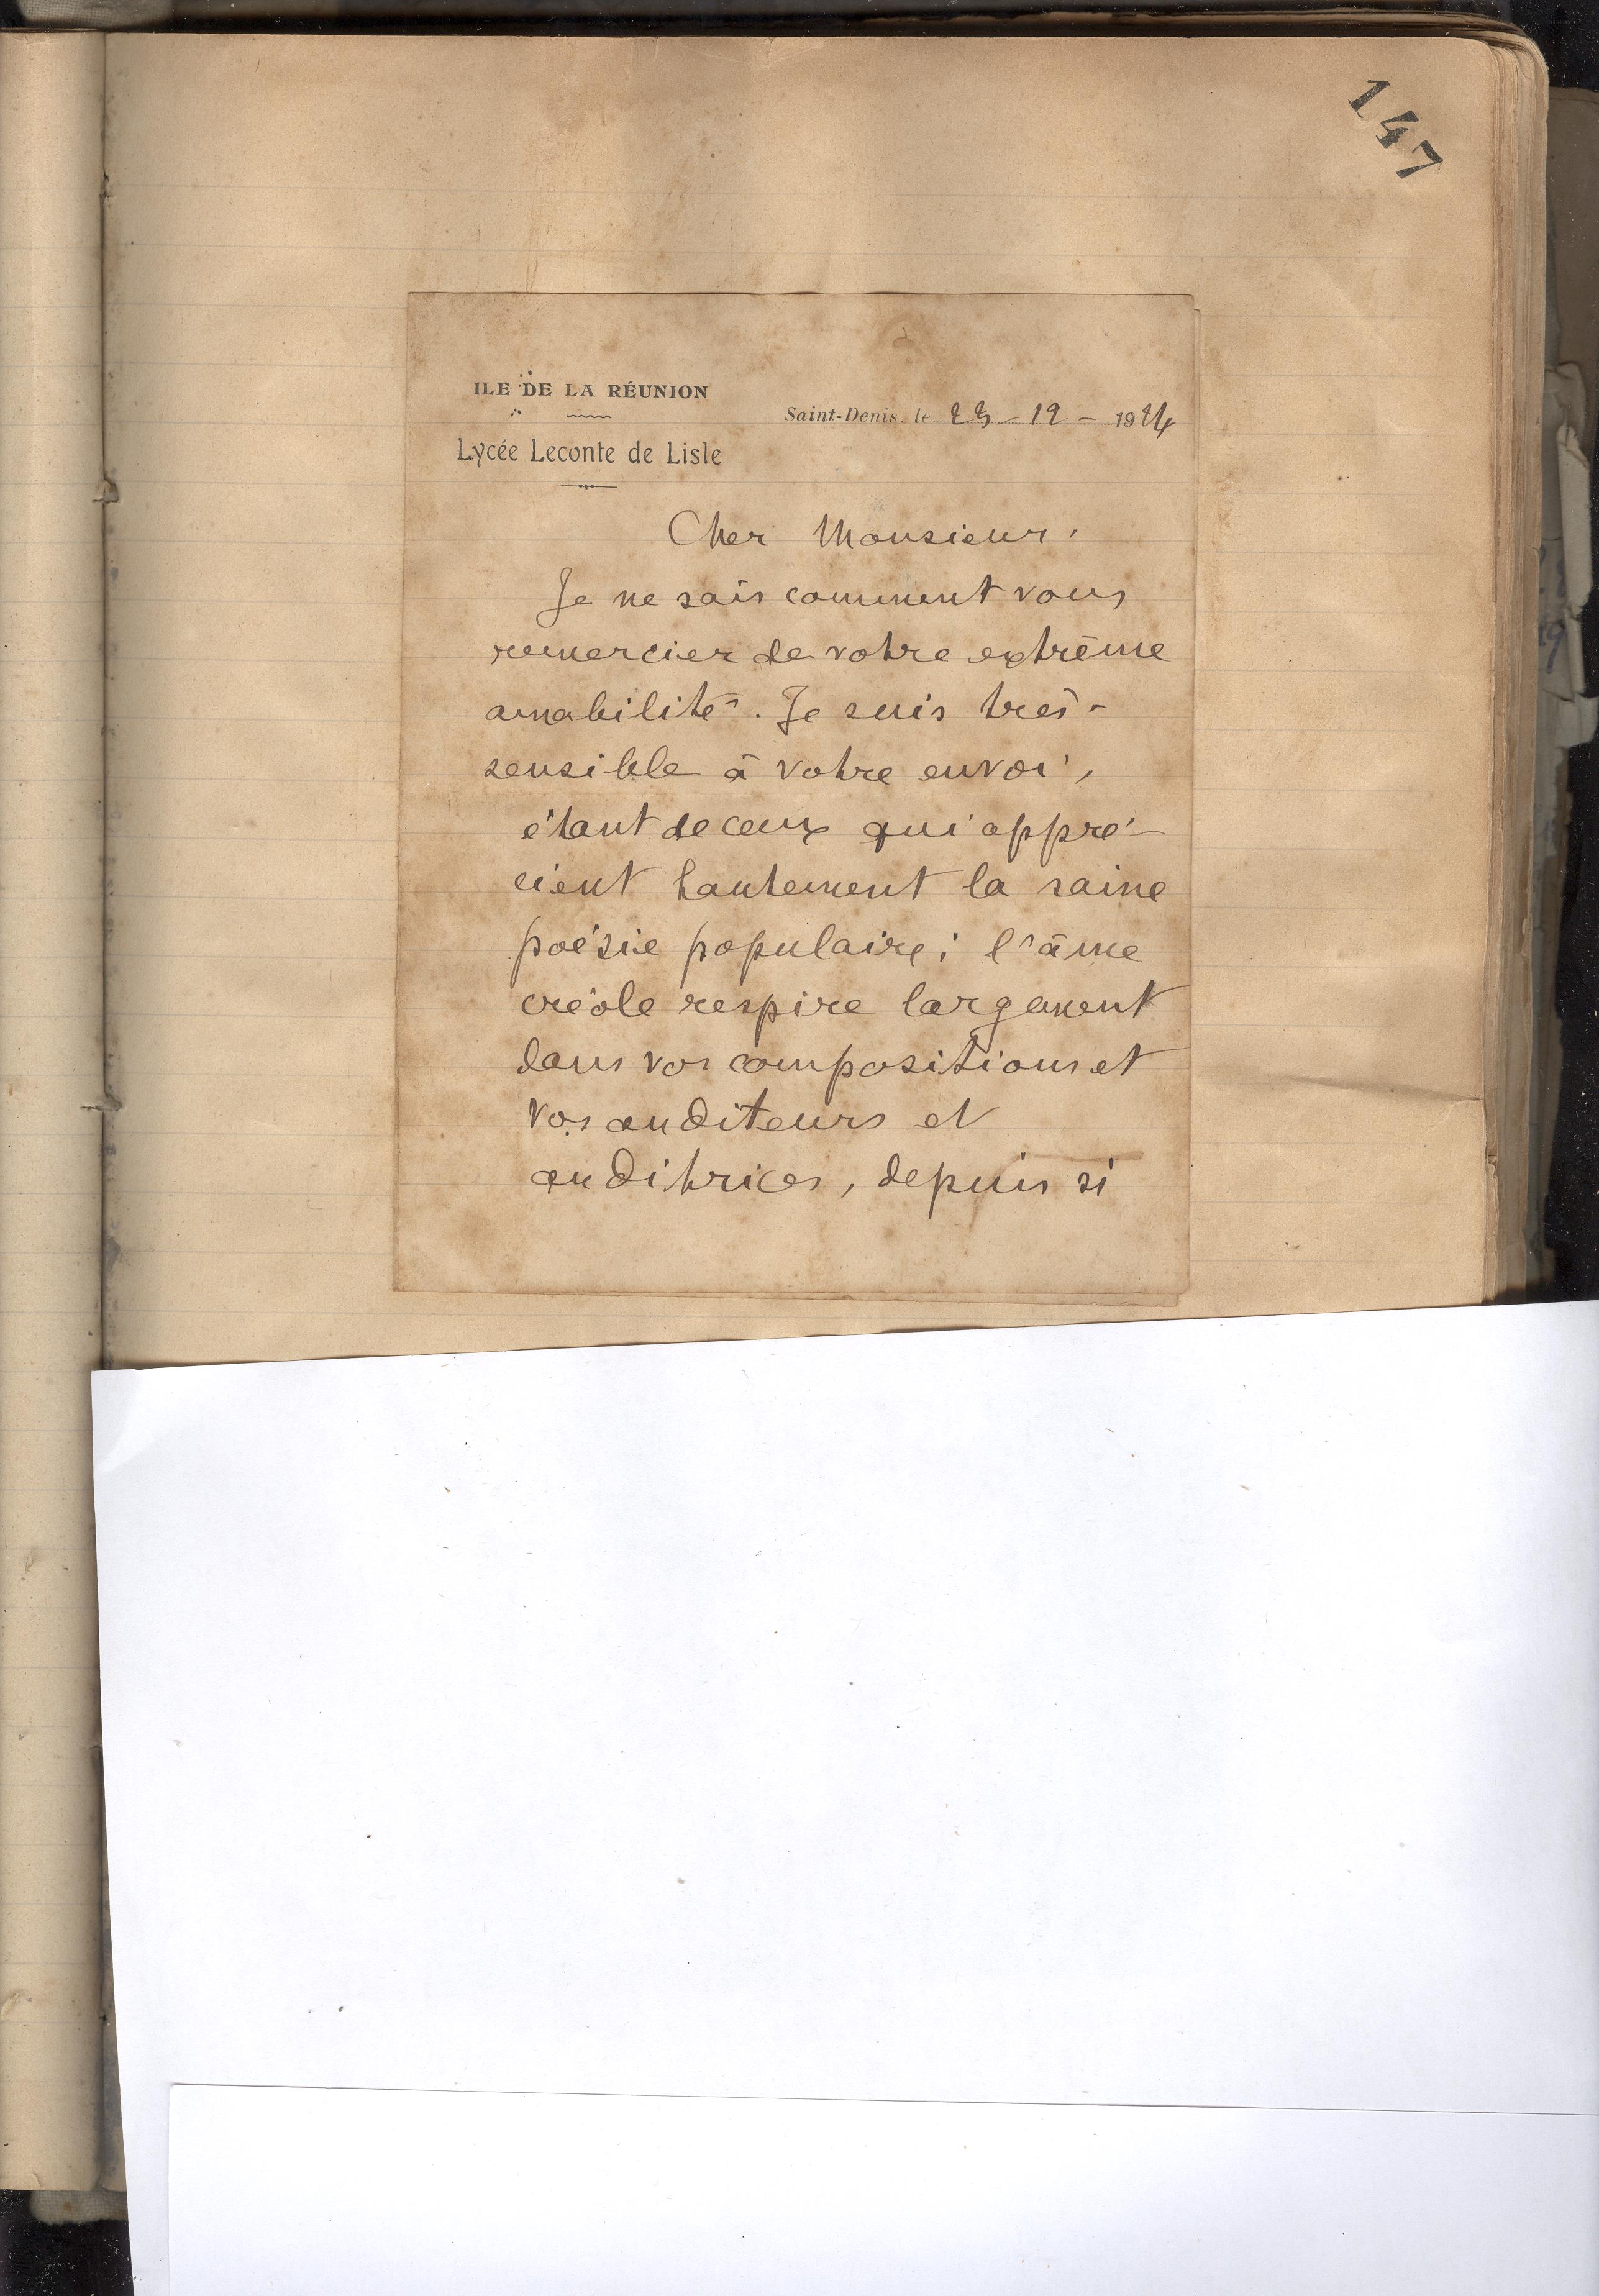 147
ILE DE LA RÉUNION
Saint-Denis, le 23 - 12 - 1924
Lycée Leconte de Lisle
Cher Monsieur,
Je ne sais comment vous
remercier de votre extrême
amabilité. Je suis très-
sensible à votre envoi,
étant de ceux qui appré-
cient hautement la saine
poésie populaire; l'âme
créole respire largement
dans vos compositions et
vos auditeurs et
auditrices, depuis si